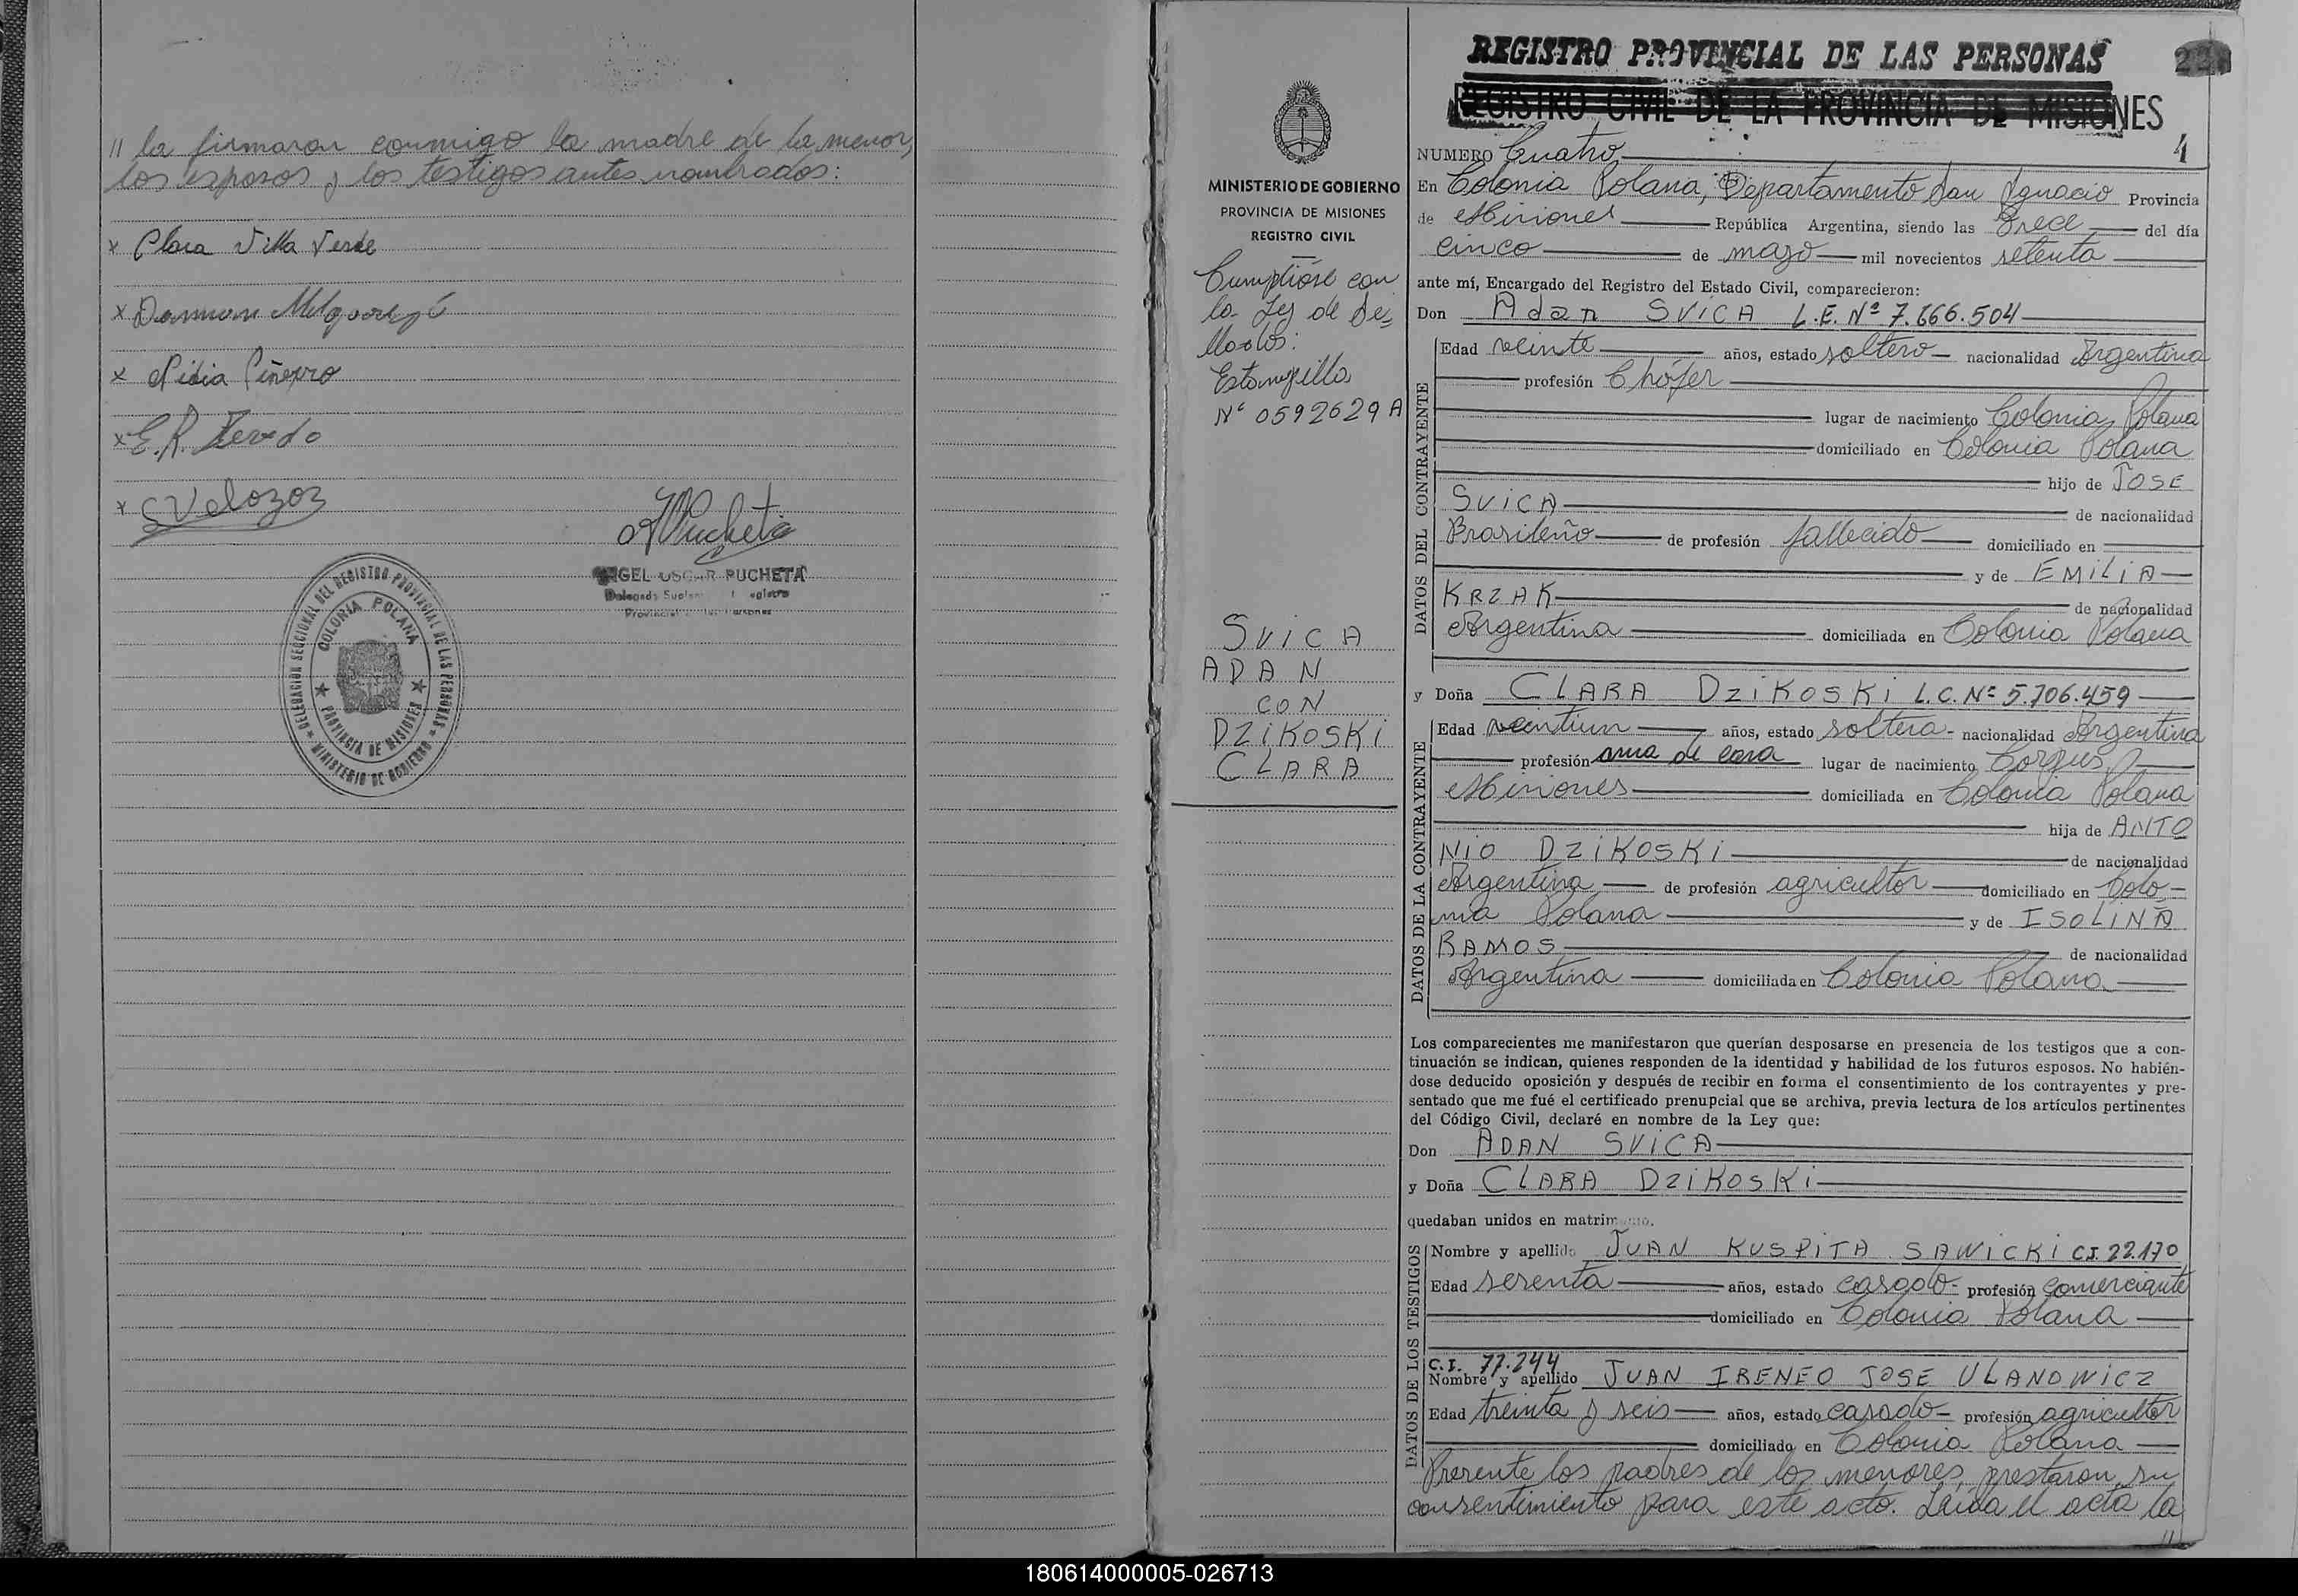 // la firmaron conmigo la madre de la menor,
los esposos y los testigos antes nombrados:
x Clara Villa Verde
x
x Nidia Piñeyro
x E. R.
x S Velozoz
ANGEL OSCAR PUCHETA
Delegado Suplente Registro
Provincial de las Personas
DELEGACION SECCIONAL DEL REGISTRO PROVINCIAL DE LAS PERSONAS
MINISTERIO DE GOBIERNO
COLONIA POLANA
PROVINCIA DE MISIONES
MINISTERIO DE GOBIERNO
PROVINCIA DE MISIONES
REGISTRO CIVIL
Cumplióse con
la Ley de Se=
llados:
Estampilla
Nº 0592629 A
SVICA
ADAN
CON
DZIKOSKI
CLARA
REGISTRO PROVINCIAL DE LAS PERSONAS
REGISTRO CIVIL DE LA PROVINCIA DE MISIONES
NUMERO Cuatro 4
En Colonia Polana, Departamento San Ignacio Provincia
de Misiones República Argentina, siendo las Trece del día
cinco de mayo mil novecientos setenta
ante mí, Encargado del Registro del Estado Civil, comparecieron:
Don Adan SVICA L.E. Nº 7.666.504
DATOS DEL CONTRAYENTE
Edad veinte años, estado soltero nacionalidad Argentina
profesión Chófer
lugar de nacimiento Colonia Polana
domiciliado en Colonia Polana
hijo de JOSE
SVICA de nacionalidad
Brasileño de profesión fallecido domiciliado en
y de EMILIA
KRZAK de nacionalidad
Argentina domiciliada en Colonia Polana
y Doña CLARA DZIKOSKI L.C. Nº 5.706.459
DATOS DE LA CONTRAYENTE
Edad veintiun años, estado soltera - nacionalidad Argentina
profesión ama de casa lugar de nacimiento Corpus,
Misiones domiciliada en Colonia Polana
hija de ANTO
NIO DZIKOSKI de nacionalidad
Argentina de profesión agricultor domiciliado en Colo-
nia Polana y de ISOLINA
RAMOS de nacionalidad
Argentina domiciliada en Colonia Polana
Los comparecientes me manifestaron que querían desposarse en presencia de los testigos que a con-
tinuación se indican, quienes responden de la identidad y habilidad de los futuros esposos. No habién-
dose deducido oposición y después de recibir en forma el consentimiento de los contrayentes y pre-
sentado que me fué el certificado prenupcial que se archiva, previa lectura de los artículos pertinentes
del Código Civil, declaré en nombre de la Ley que:
Don ADAN SVICA
y Doña CLARA DZIKOSKI
quedaban unidos en matrimonio.
DATOS DE LOS TESTIGOS
Nombre y apellido JUAN KUSPITA SAWICKI C.I. 22.170
Edad sesenta años, estado casado - profesión comerciante
domiciliado en Colonia Polana
C.I. 77.244
Nombre y apellido JUAN IRENEO JOSE ULANOWICZ
Edad treinta y seis años, estado casado - profesión agricultor
domiciliado en Colonia Polana
Presente los padres de los menores, prestaron su
consentimiento para este acto. Leída el acta la
//
180614000005-026713